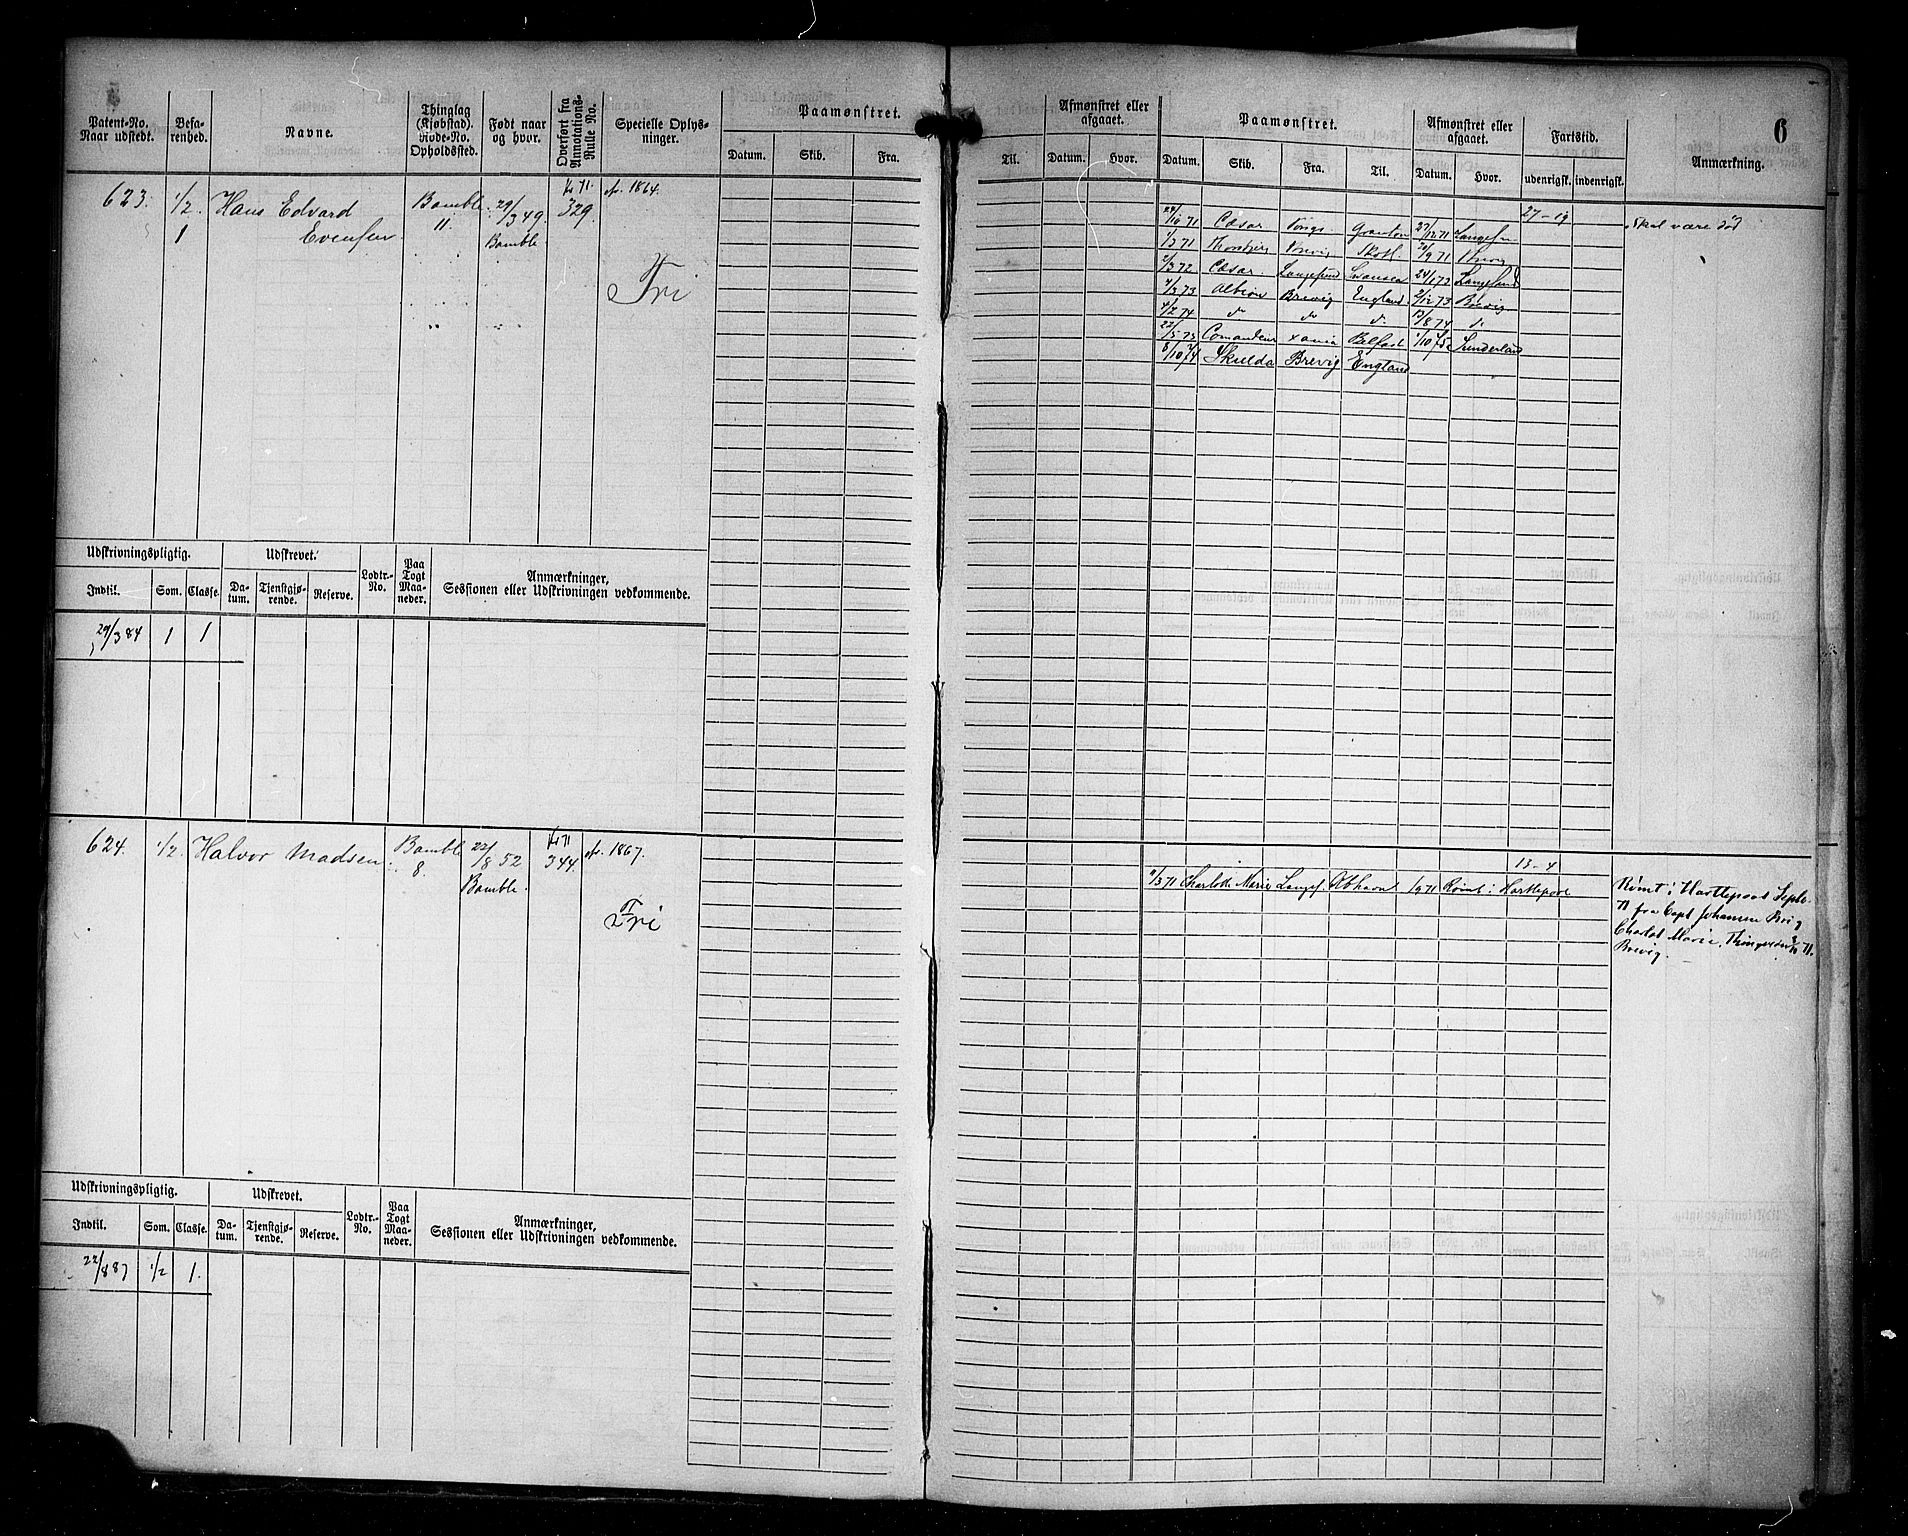 6
Patent-No. Naar udstedt.
Befarenhed.
Navne.
Thinglag (Kjøbstad). Rode-No. Opholdssted.
Født naar og hvor.
Overført fra Annotations-Rulle No.
Specielle Oplysninger.
Paamønstret.
Datum. Skib. Fra. Til.
Afmønstret eller afgaaet.
Datum. Hvor.
Paamønstret.
Datum. Skib. Fra. Til.
Afmønstret eller afgaaet.
Datum. Hvor.
Fartstid.
udenrigsk. indenrigsk.
Anmærkning.
623. 1/2. Hans Edvard Bamble 29/3 49. 329. 1864.
1 Evensen 11. Bamble.
Fri
27-19 Skal være død
71 Cæsar Granton 71
1/3 71 Brevig Skotl. 71
2/3 72 Cæsar Langesund Swansea 24/1 73 Langesund
73 Albion Brevig England 73 Brevig
4/2 74 do do do 13/8 74 do
Comandeur Xania Belfast 1/10 75 Sunderland
8/10 74 Skulda Brevig England
Udskrivningspligtig. Udskrevet. Lodtr.-No. Paa Togt Maaneder. Anmærkninger, Sessionen eller Udskrivningen vedkommende.
Indtil. Som. Classe. Datum. Tjenstgjørende. Reserve.
29/3 84 1 1
624. 1/2. Halvor Madsen Bamble 22/8 52 344. 1867.
8. Bamble.
Fri
13-4
71 Charlotte Marie Langes. 1/9 71 Rømt i Hartlepool
Rømt i Septe.
71 fra Capt Johannesen Brig
Marie,
Brevig.
Udskrivningspligtig. Udskrevet. Lodtr.-No. Paa Togt Maaneder. Anmærkninger, Sessionen eller Udskrivningen vedkommende.
Indtil. Som. Classe. Datum. Tjenstgjørende. Reserve.
22/8 87 1/2 1.